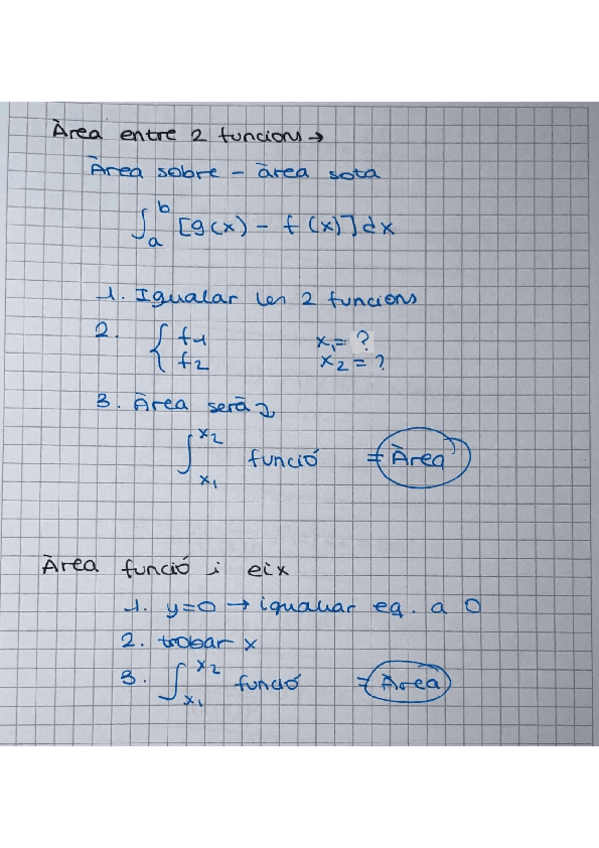 Àrea entre 2 funcions →
Àrea sobre - àrea sota
∫ₐᵇ [g(x) - f(x)] dx
1. Igualar les 2 funcions
2. { f1 x₁ = ?
f2 x₂ = ?
3. Àrea serà
∫ₓ₁ˣ² funció = Àrea
Àrea funció i eix
1. y=0 → igualar eq. a 0
2. trobar x
3. ∫ₓ₁ˣ² funció = Àrea